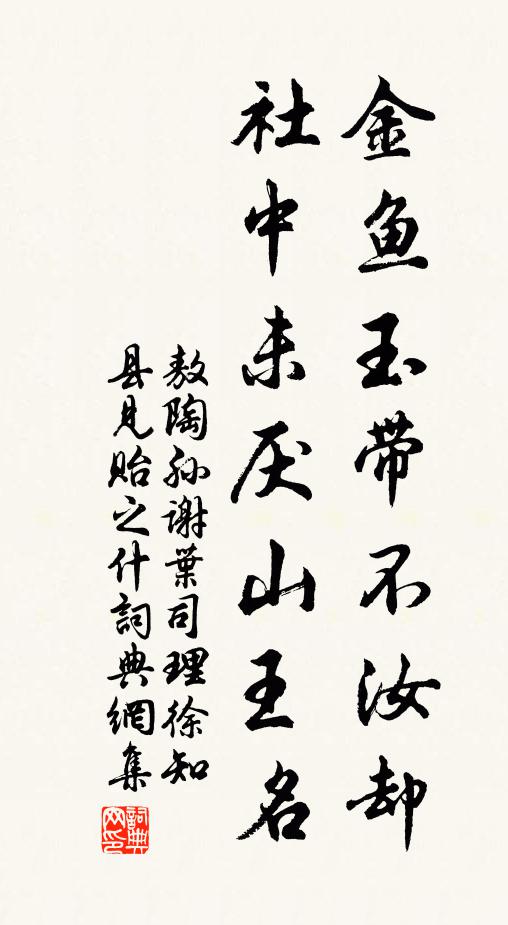 金鱼玉带不汝却
社中未厌山王名
敖陶孙谢葉司理徐知
县见贻之什詞典網集
詞典网印